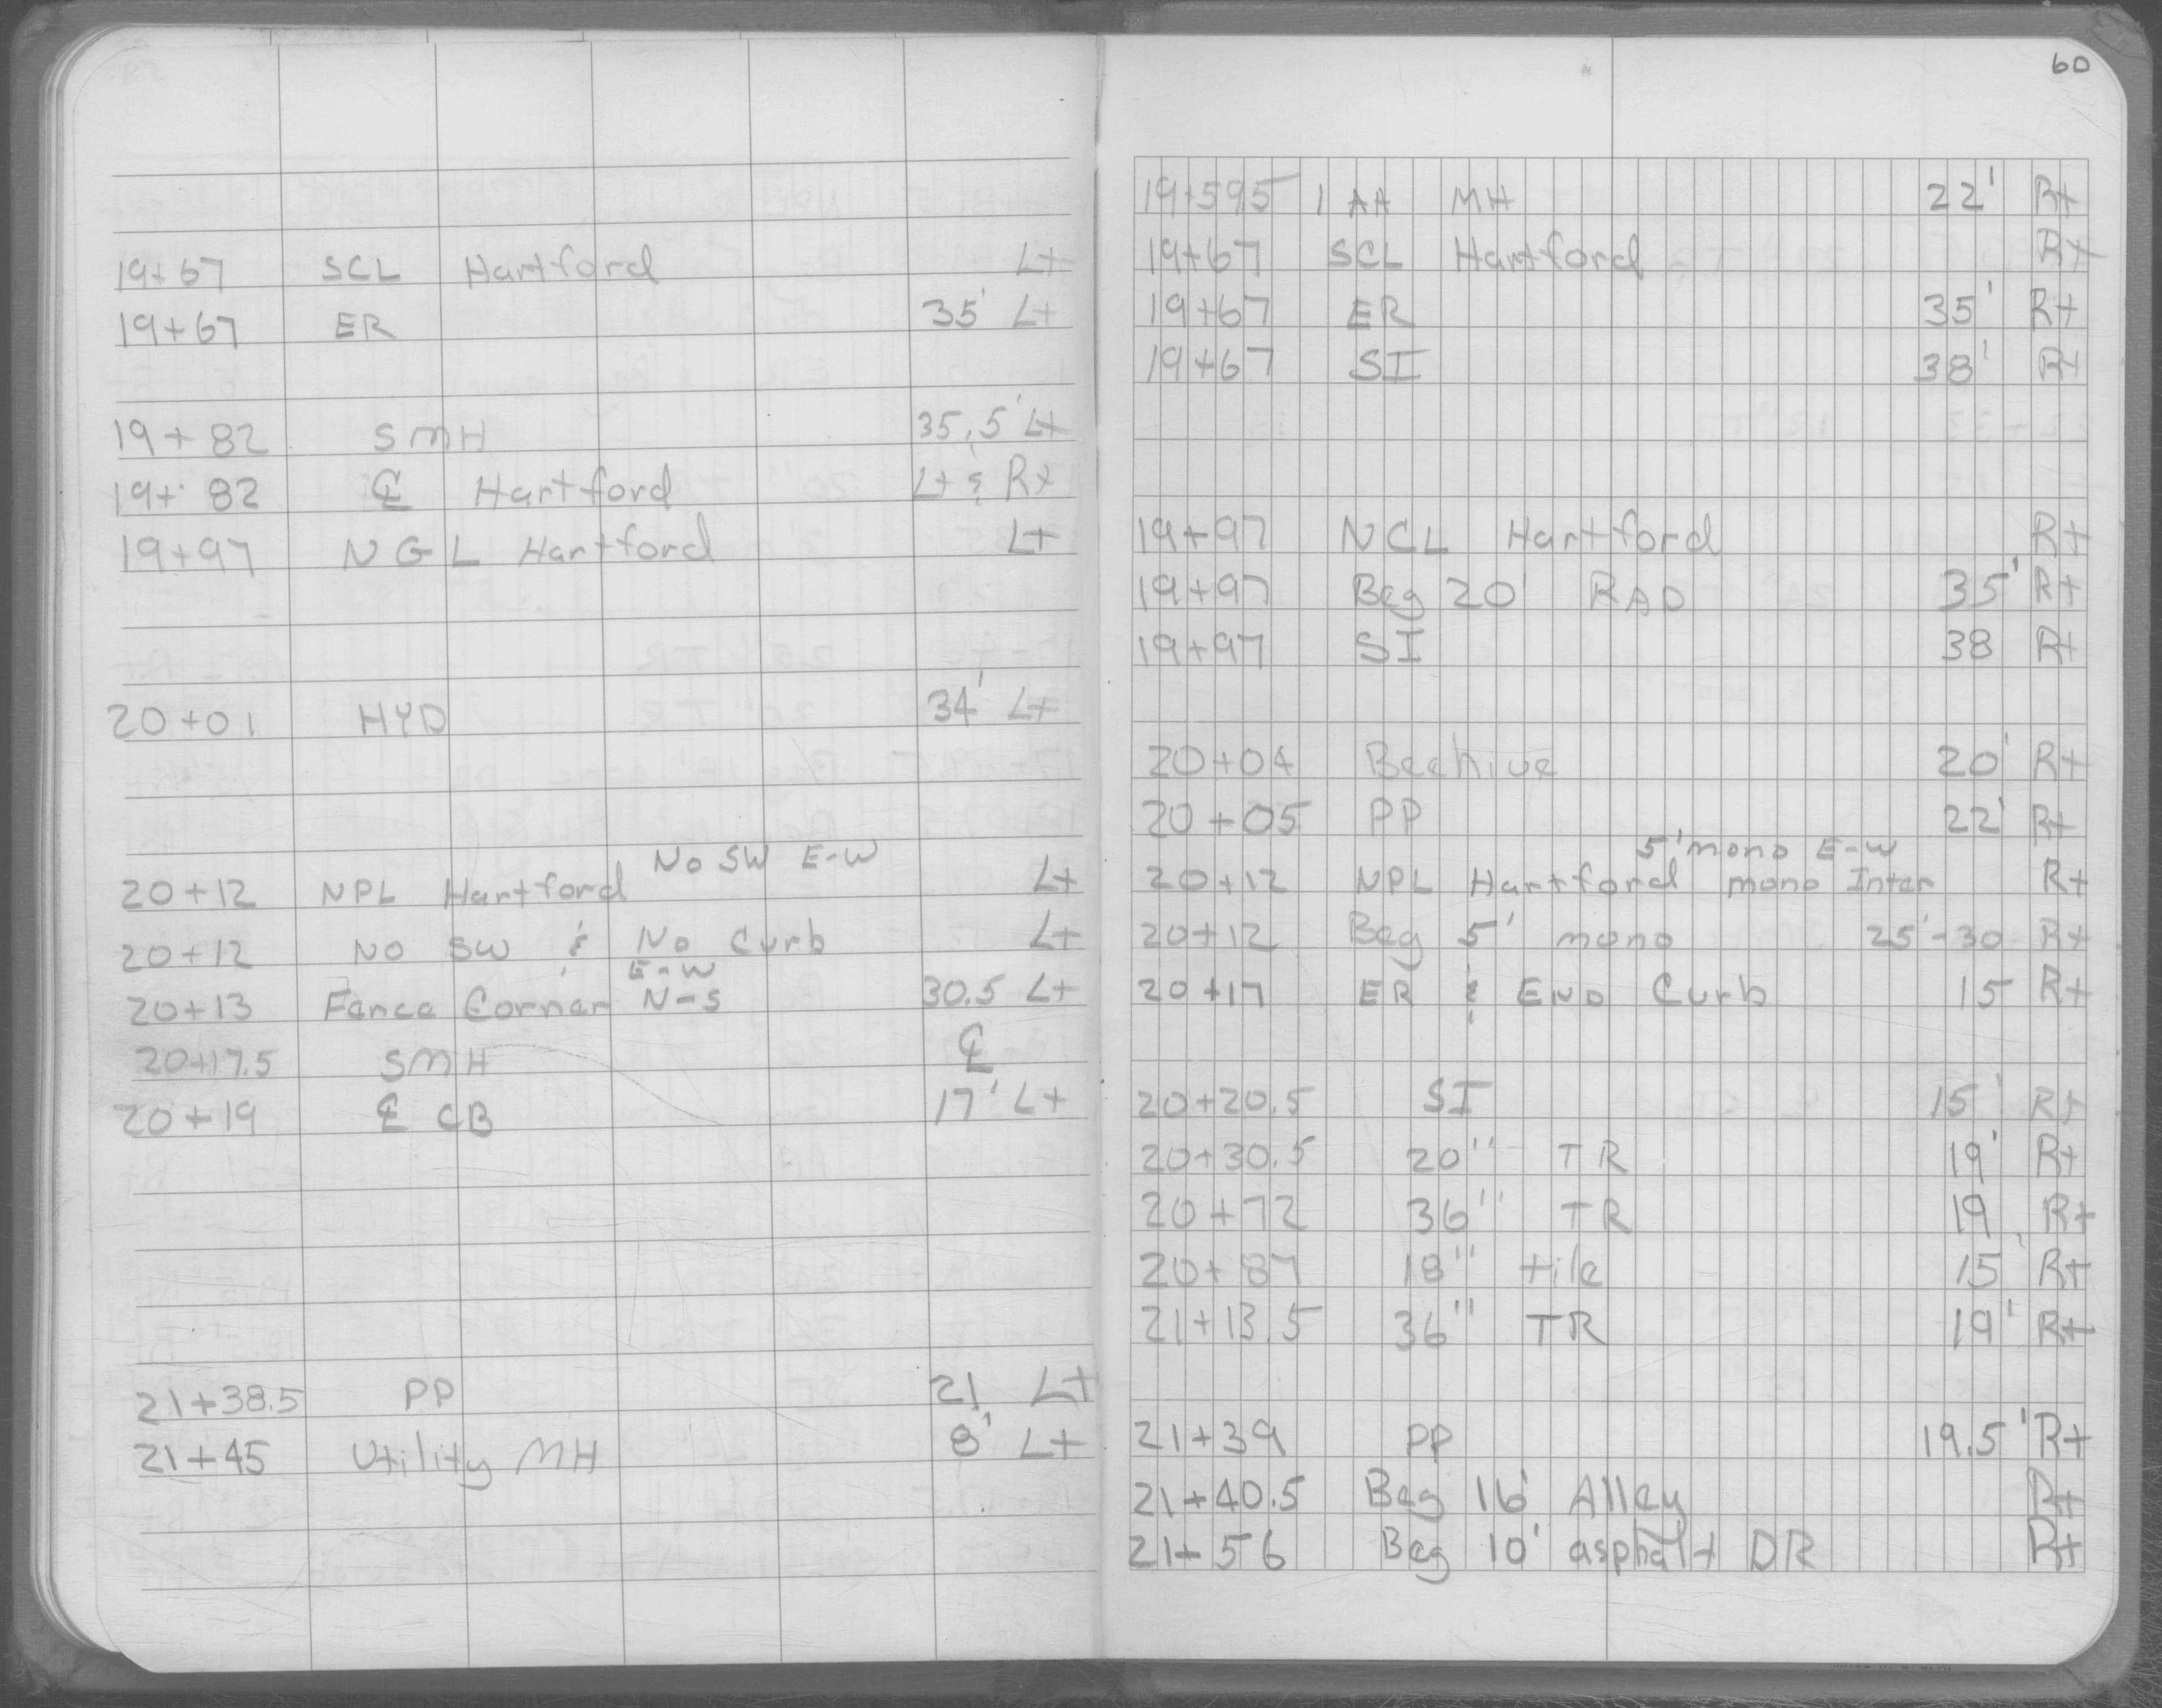 19+67 SCL Hartford Lt
19+67 ER 35' Lt
19+82 SMH 35.5' Lt
19+82 ℄ Hartford Lt & Rt
19+97 NGL Hartford Lt
20+01 HYD 34' Lt
No SW E-W
20+12 NPL Hartford Lt
20+12 No SW & No Curb Lt
E-W
20+13 Fence Corner N-S 30.5 Lt
20+17.5 SMH ℄
20+19 ℄ CB 17' Lt
21+38.5 PP 21 Lt
21+45 Utility MH 8' Lt
60
19+595 MH 22' Rt
19+67 SCL Hartford Rt
19+67 ER 35' Rt
19+67 SI 38' Rt
19+97 NCL Hartford Rt
19+97 Beg 20' RAD 35' Rt
19+97 SI 38 Rt
20+04 Beehive 20' Rt
20+05 PP 22' Rt
5' mono E-W
20+12 NPL Hartford mono Inter Rt
20+12 Beg 5' mono 25'-30 Rt
20+17 ER & END Curb 15 Rt
20+20.5 SI 15' Rt
20+30.5 20" TR 19' Rt
20+72 36" TR 19 Rt
20+87 18" tile 15' Rt
21+13.5 36" TR 19' Rt
21+39 PP 19.5' Rt
21+40.5 Beg 16' Alley Rt
21+56 Beg 10' asphalt DR Rt